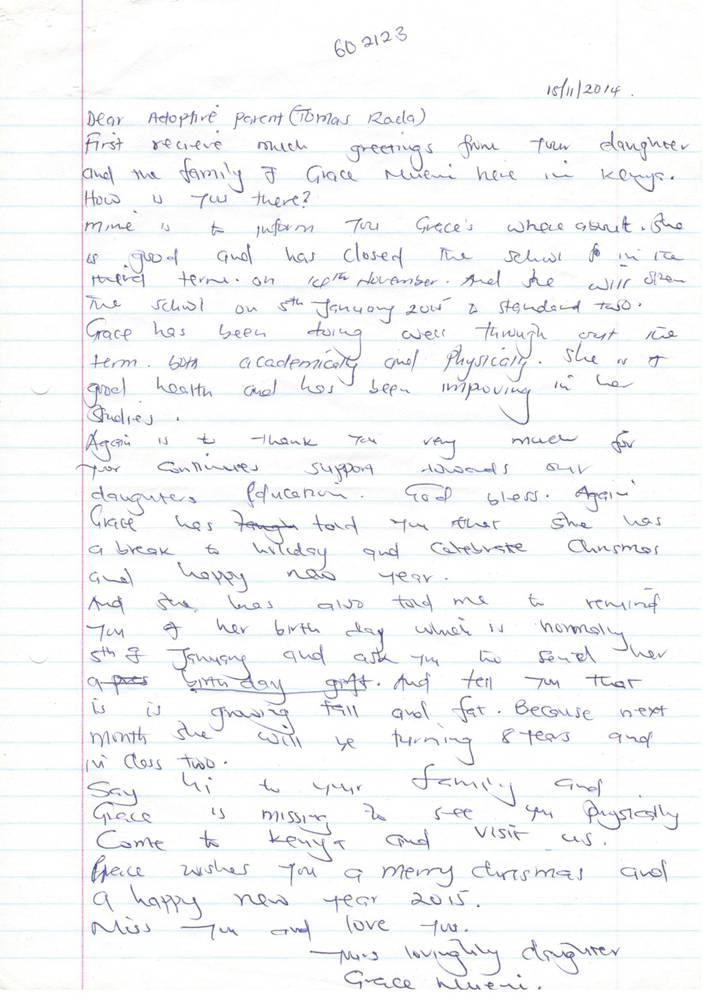 602123
15/11/2014.
Dear Adoptive parent (Tomas Rada)
First recieve much greetings from your daughter
and the family of Grace Mueni here in Kenya.
How is you there?
Mine is to inform you Grace's where about. She
is good and has closed the school in the
third term. on November. And she will open
the school on 5th January 2015 to standard two.
Grace has been doing well through out the
term. both academically and physically. She is of
good health and has been improving in her
Studies.
Again is to thank you very much for
your continues support towards our
daughters Education. God bless. Again
Grace has told you that she has
a break to holiday and celebrate Chrismas
and happy new year.
And she has also told me to remind
you of her birth day which is normally
5th of January and ask you to send her
a birth day gift. And tell you that
is is growing tall and fat. Because next
month she will be turning 8 years and
in class two.
Say hi to your family and
Grace is missing to see you physically
Come to Kenya and visit us.
Grace wishes you a merry chrismas and
a happy new year 2015.
Miss you and love you.
daughter
Grace Mueni.